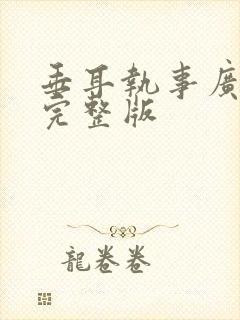 垂耳執事廣
完整版
龍卷卷